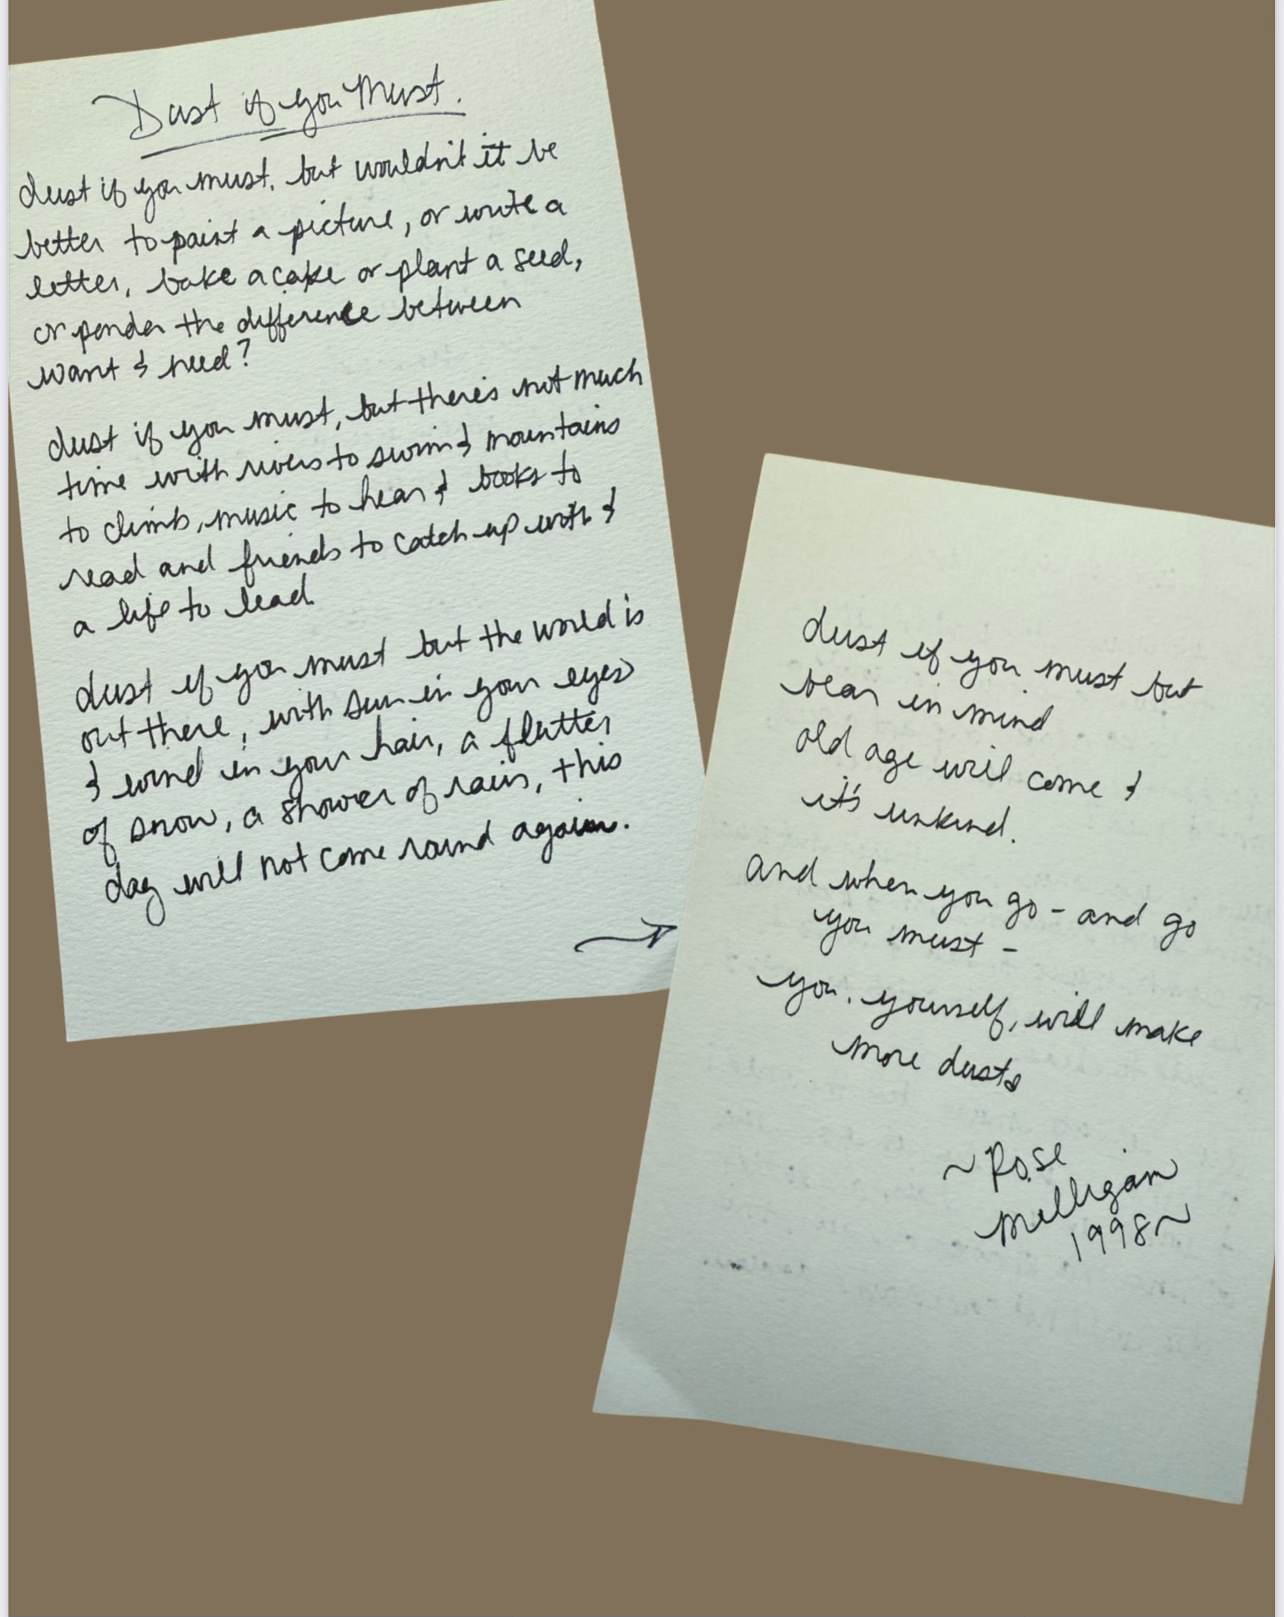 Dust if you Must.
dust if you must, but wouldn't it be
better to paint a picture, or write a
letter, bake a cake or plant a seed,
or ponder the difference between
want & need?
dust if you must, but there's not much
time with rivers to swim & mountains
to climb, music to hear & books to
read and friends to catch up with &
a life to lead.
dust if you must but the world is
out there, with sun in your eyes
& wind in your hair, a flutter
of snow, a shower of rain, this
day will not come round again.
dust if you must but
bear in mind
old age will come &
it's unkind.
and when you go - and go
you must -
you, yourself, will make
more dust.
~ Rose
Milligan
1998 ~